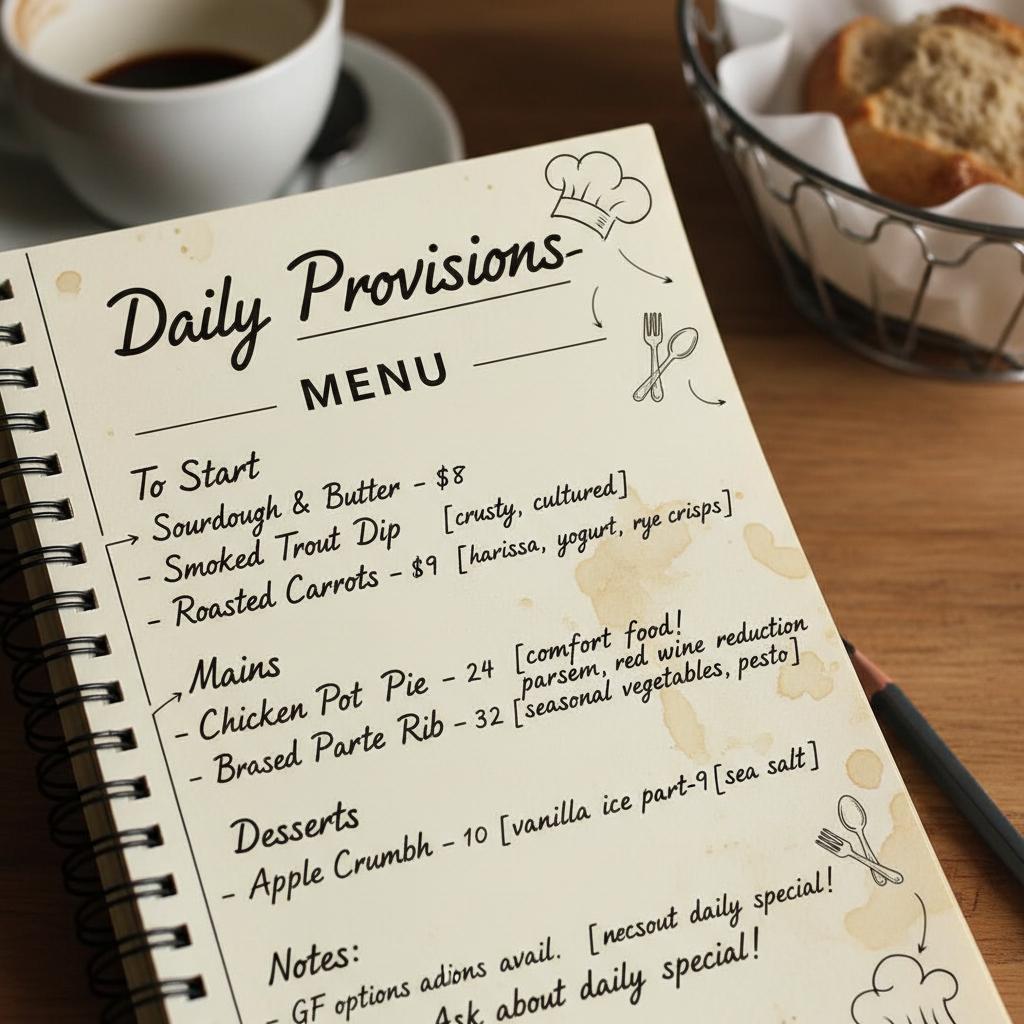 Daily Provisions-
MENU
To Start
Sourdough & Butter - $8
- Smoked Trout Dip [crusty, cultured]
- Roasted Carrots - $9 [harissa, yogurt, rye crisps]
Mains
- Chicken Pot Pie - 24 [comfort food!
parsem, red wine reduction
- Brased Parte Rib - 32 [seasonal vegetables, pesto]
Desserts
- Apple Crumbh - 10 [vanilla ice part-9 [sea salt]
Notes:
- GF options adions avail. [necsout daily special!
Ask about daily special!